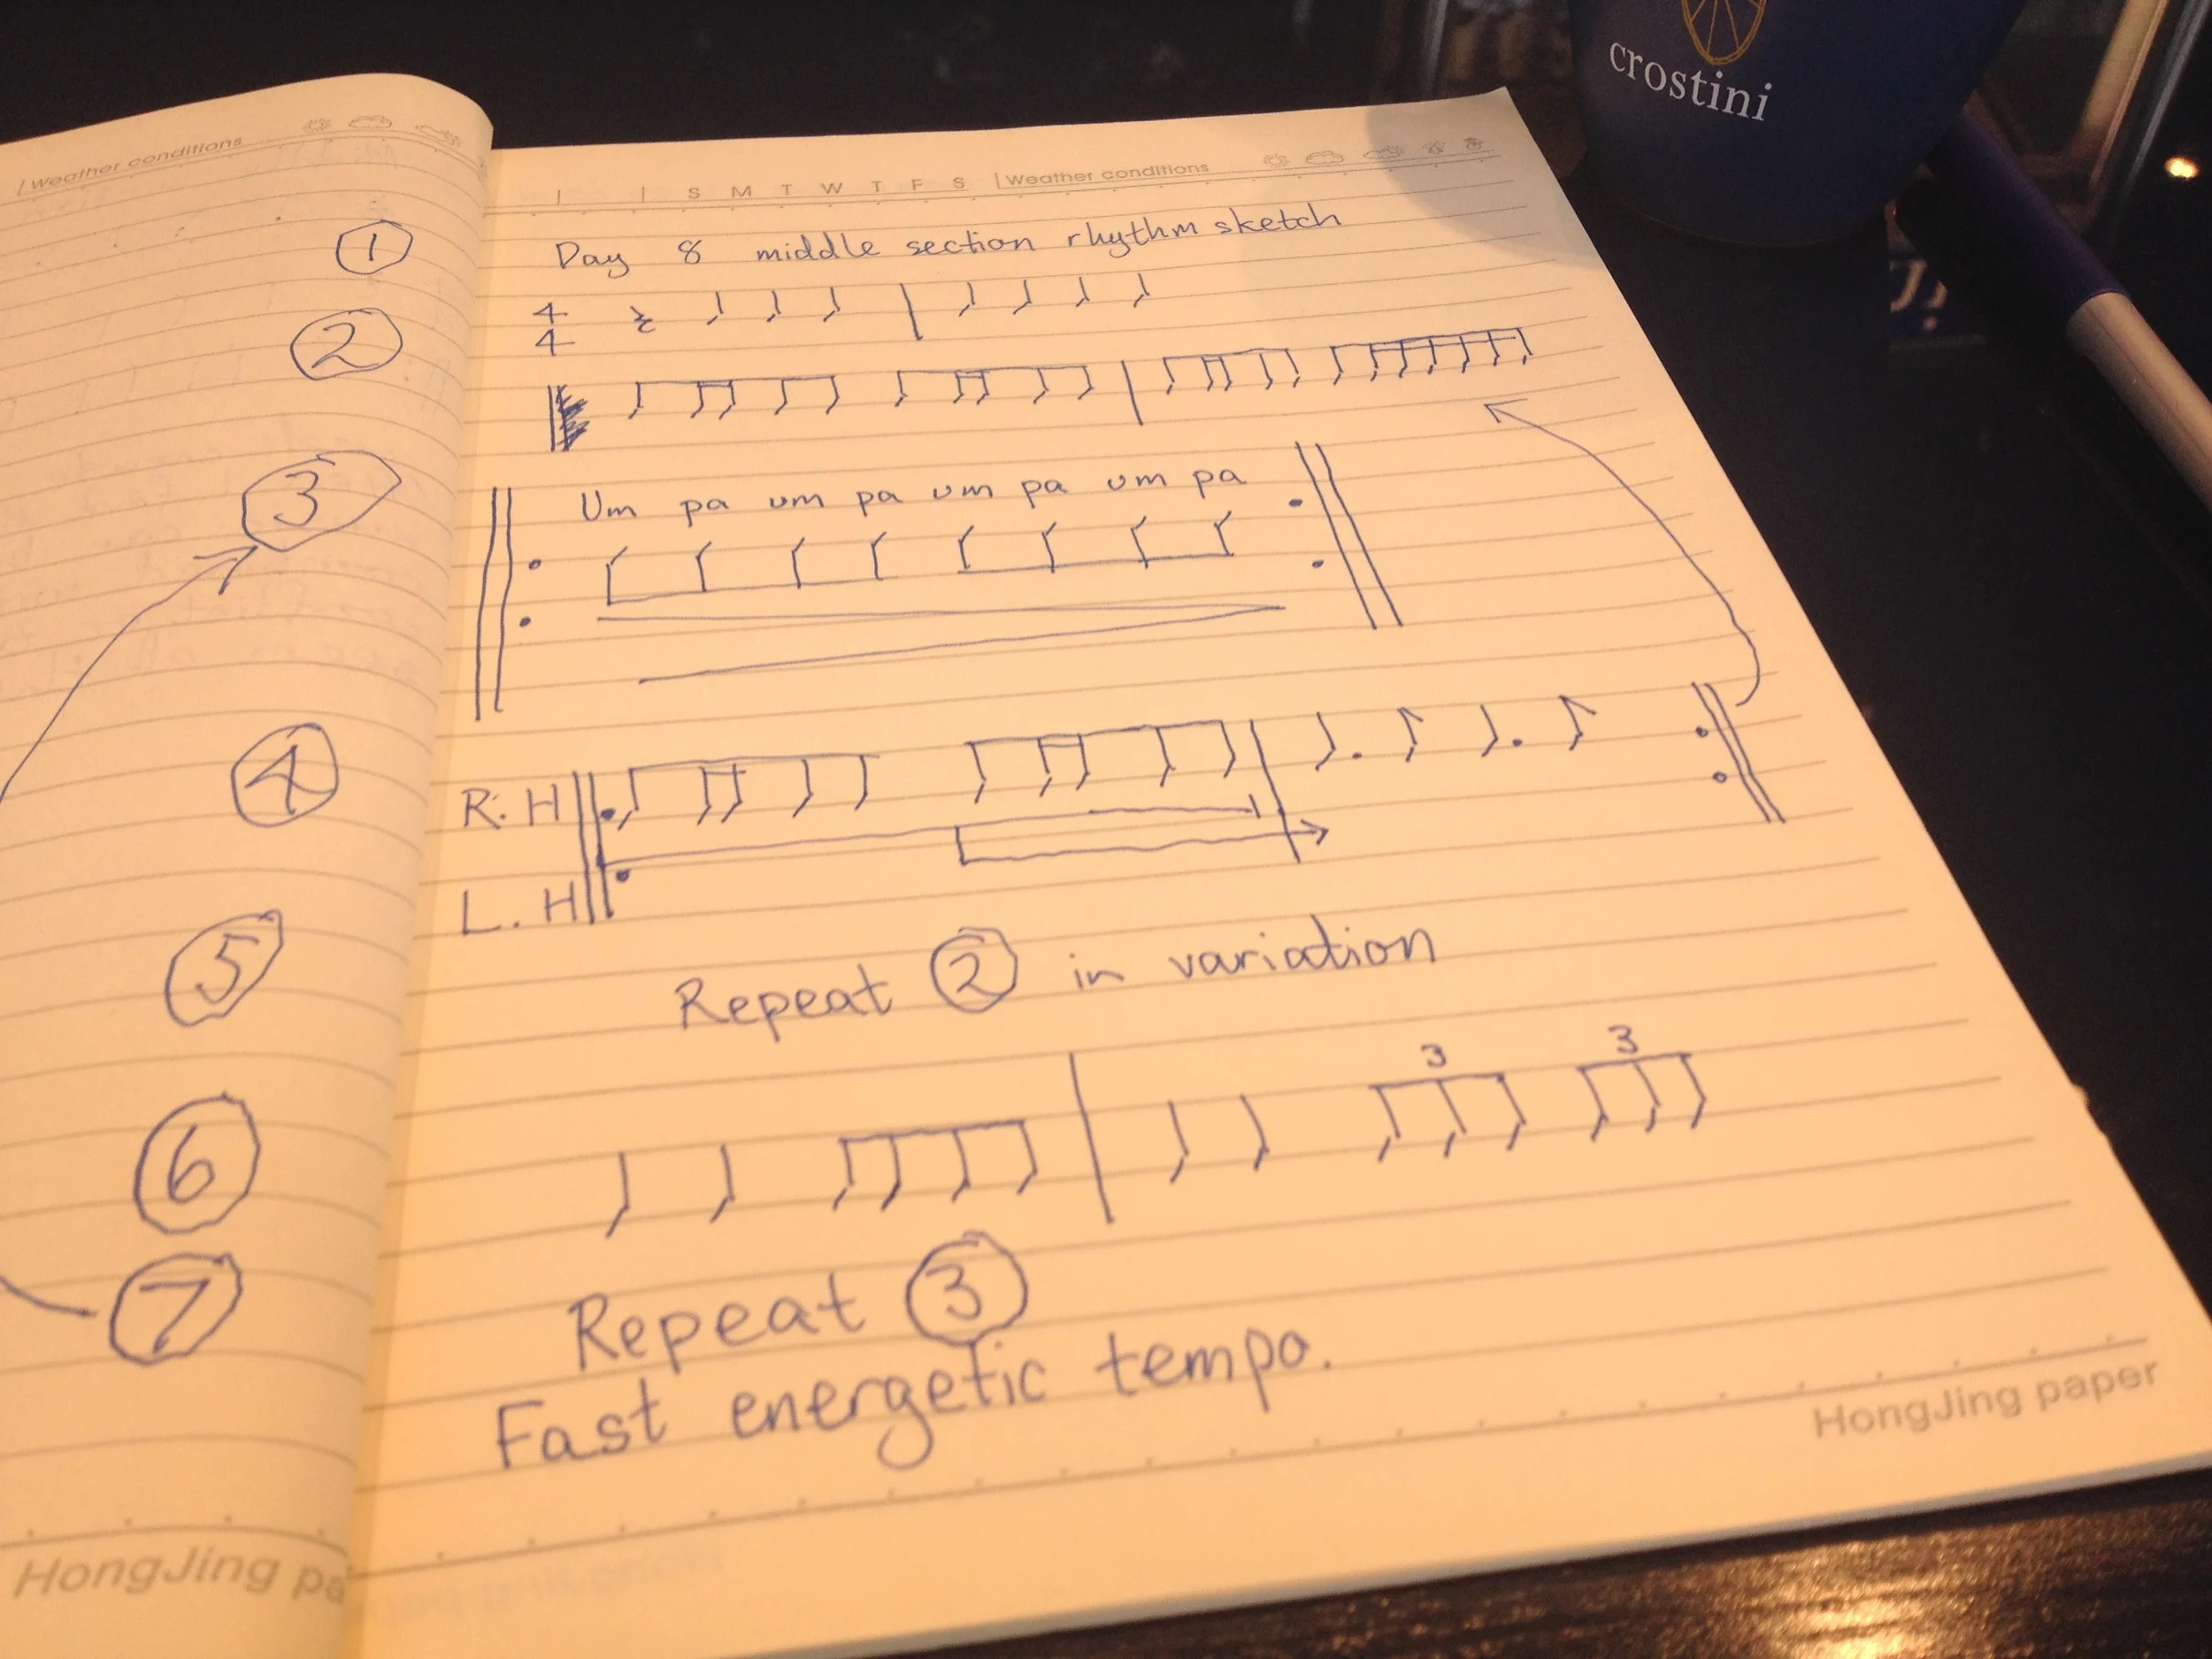 crostini
Weather conditions
S M T W T F S Weather conditions
1 Day 8 middle section rhythm sketch
4
4
2
3 Um pa um pa um pa um pa
4 R.H
L.H
5 Repeat 2 in variation
3 3
6
7 Repeat 3
Fast energetic tempo.
HongJing paper
HongJing pa